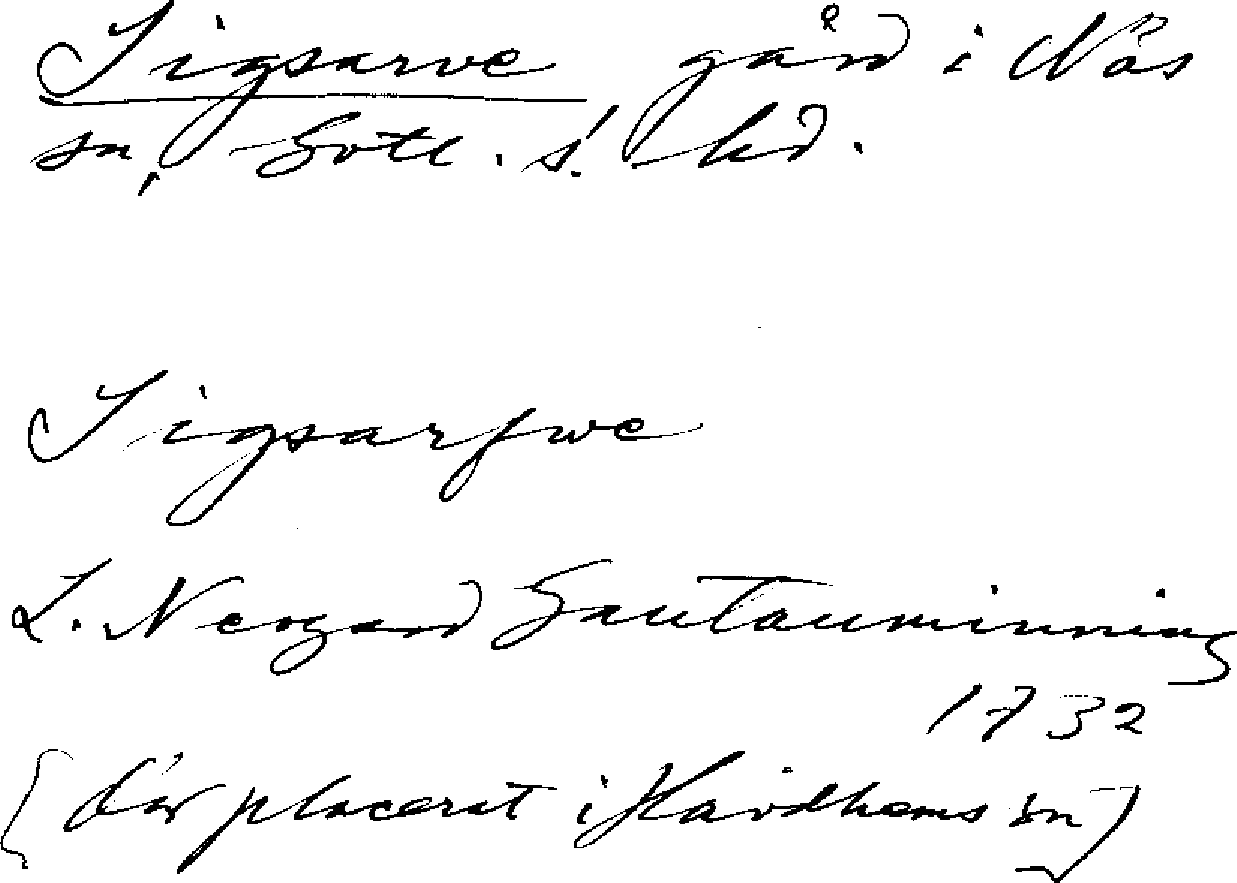 Sigsarve gård i Näs
sn, Gotl. s. hd.
Sigsarfwe
L. Neogard Gautauminning
1732
(här placerat i Havdhems sn)